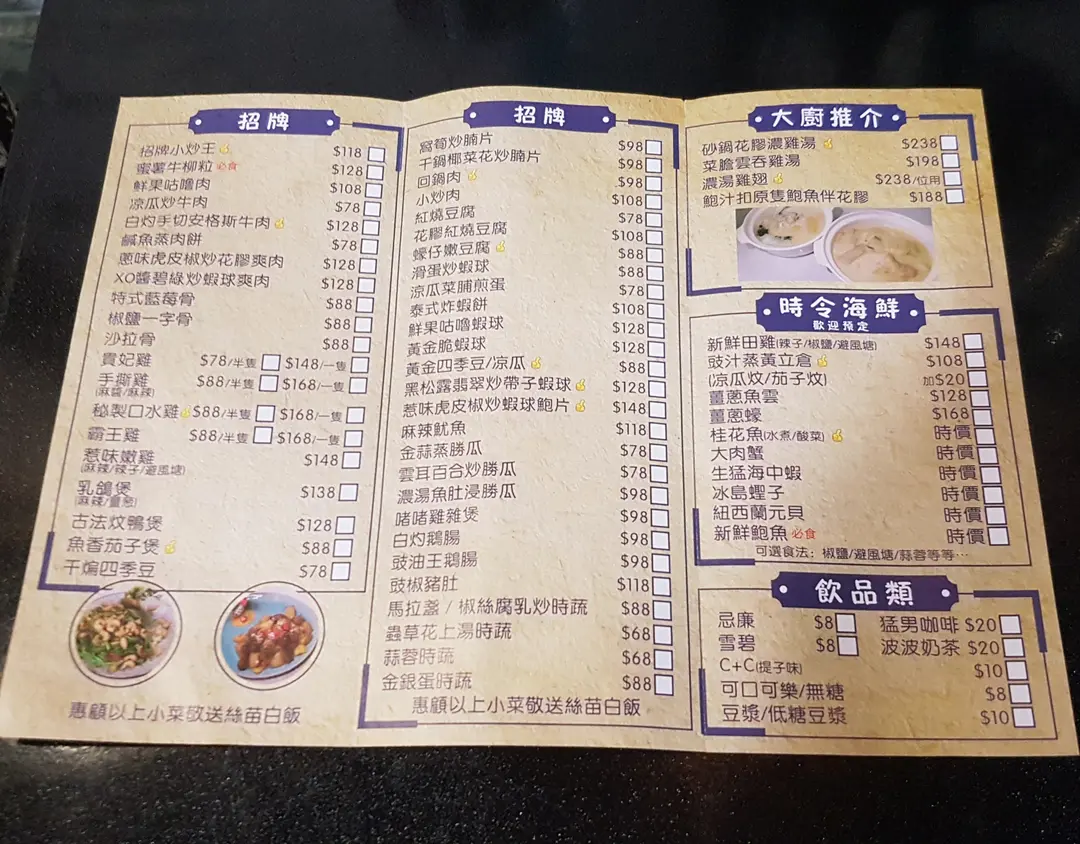 招牌
招牌小炒王 $118
蜜薯牛柳粒 必食 $128
鮮果咕嚕肉 $108
凉瓜炒牛肉 $78
白灼手切安格斯牛肉 $128
鹹魚蒸肉餅 $78
蔥味虎皮椒炒花膠爽肉 $128
XO醬碧綠炒蝦球爽肉 $128
特式藍莓骨 $88
椒鹽一字骨 $88
沙拉骨 $88
貴妃雞 $78/半隻 $148/一隻
手撕雞 $88/半隻 $168/一隻
(麻醬/麻辣)
秘製口水雞 $88/半隻 $168/一隻
霸王雞 $88/半隻 $168/一隻
惹味嫩雞 $148
(麻辣/辣子/避風塘)
乳鴿煲 $138
(麻辣/薑蔥)
古法炆鴨煲 $128
魚香茄子煲 $88
干煸四季豆 $78
惠顧以上小菜敬送絲苗白飯
招牌
窩筍炒腩片 $98
干鍋椰菜花炒腩片 $98
回鍋肉 $98
小炒肉 $108
紅燒豆腐 $78
花膠紅燒豆腐 $108
蠔仔嫩豆腐 $88
滑蛋炒蝦球 $88
涼瓜菜脯煎蛋 $78
泰式炸蝦餅 $108
鮮果咕嚕蝦球 $128
黃金脆蝦球 $128
黃金四季豆/凉瓜 $88
黑松露翡翠炒帶子蝦球 $128
惹味虎皮椒炒蝦球鮑片 $148
麻辣魷魚 $118
金蒜蒸勝瓜 $78
雲耳百合炒勝瓜 $78
濃湯魚肚浸勝瓜 $98
啫啫雞雜煲 $98
白灼鵝腸 $98
豉油王鵝腸 $98
豉椒豬肚 $118
馬拉盞 / 椒絲腐乳炒時蔬 $88
蟲草花上湯時蔬 $68
蒜蓉時蔬 $68
金銀蛋時蔬 $88
惠顧以上小菜敬送絲苗白飯
大廚推介
砂鍋花膠濃雞湯 $238
菜膽雲吞雞湯 $198
濃湯雞翅 $238/位用
鮑汁扣原隻鮑魚伴花膠 $188
時令海鮮
歡迎預定
新鮮田雞(辣子/椒鹽/避風塘) $148
豉汁蒸黃立倉 $108
(凉瓜炆/茄子炆) 加$20
薑蔥魚雲 $128
薑蔥蠔 $168
桂花魚(水煮/酸菜) 時價
大肉蟹 時價
生猛海中蝦 時價
冰島蟶子 時價
紐西蘭元貝 時價
新鮮鮑魚 必食 時價
可選食法: 椒鹽/避風塘/蒜蓉等等…
飲品類
忌廉 $8 猛男咖啡 $20
雪碧 $8 波波奶茶 $20
C+C(提子味) $10
可口可樂/無糖 $8
豆漿/低糖豆漿 $10